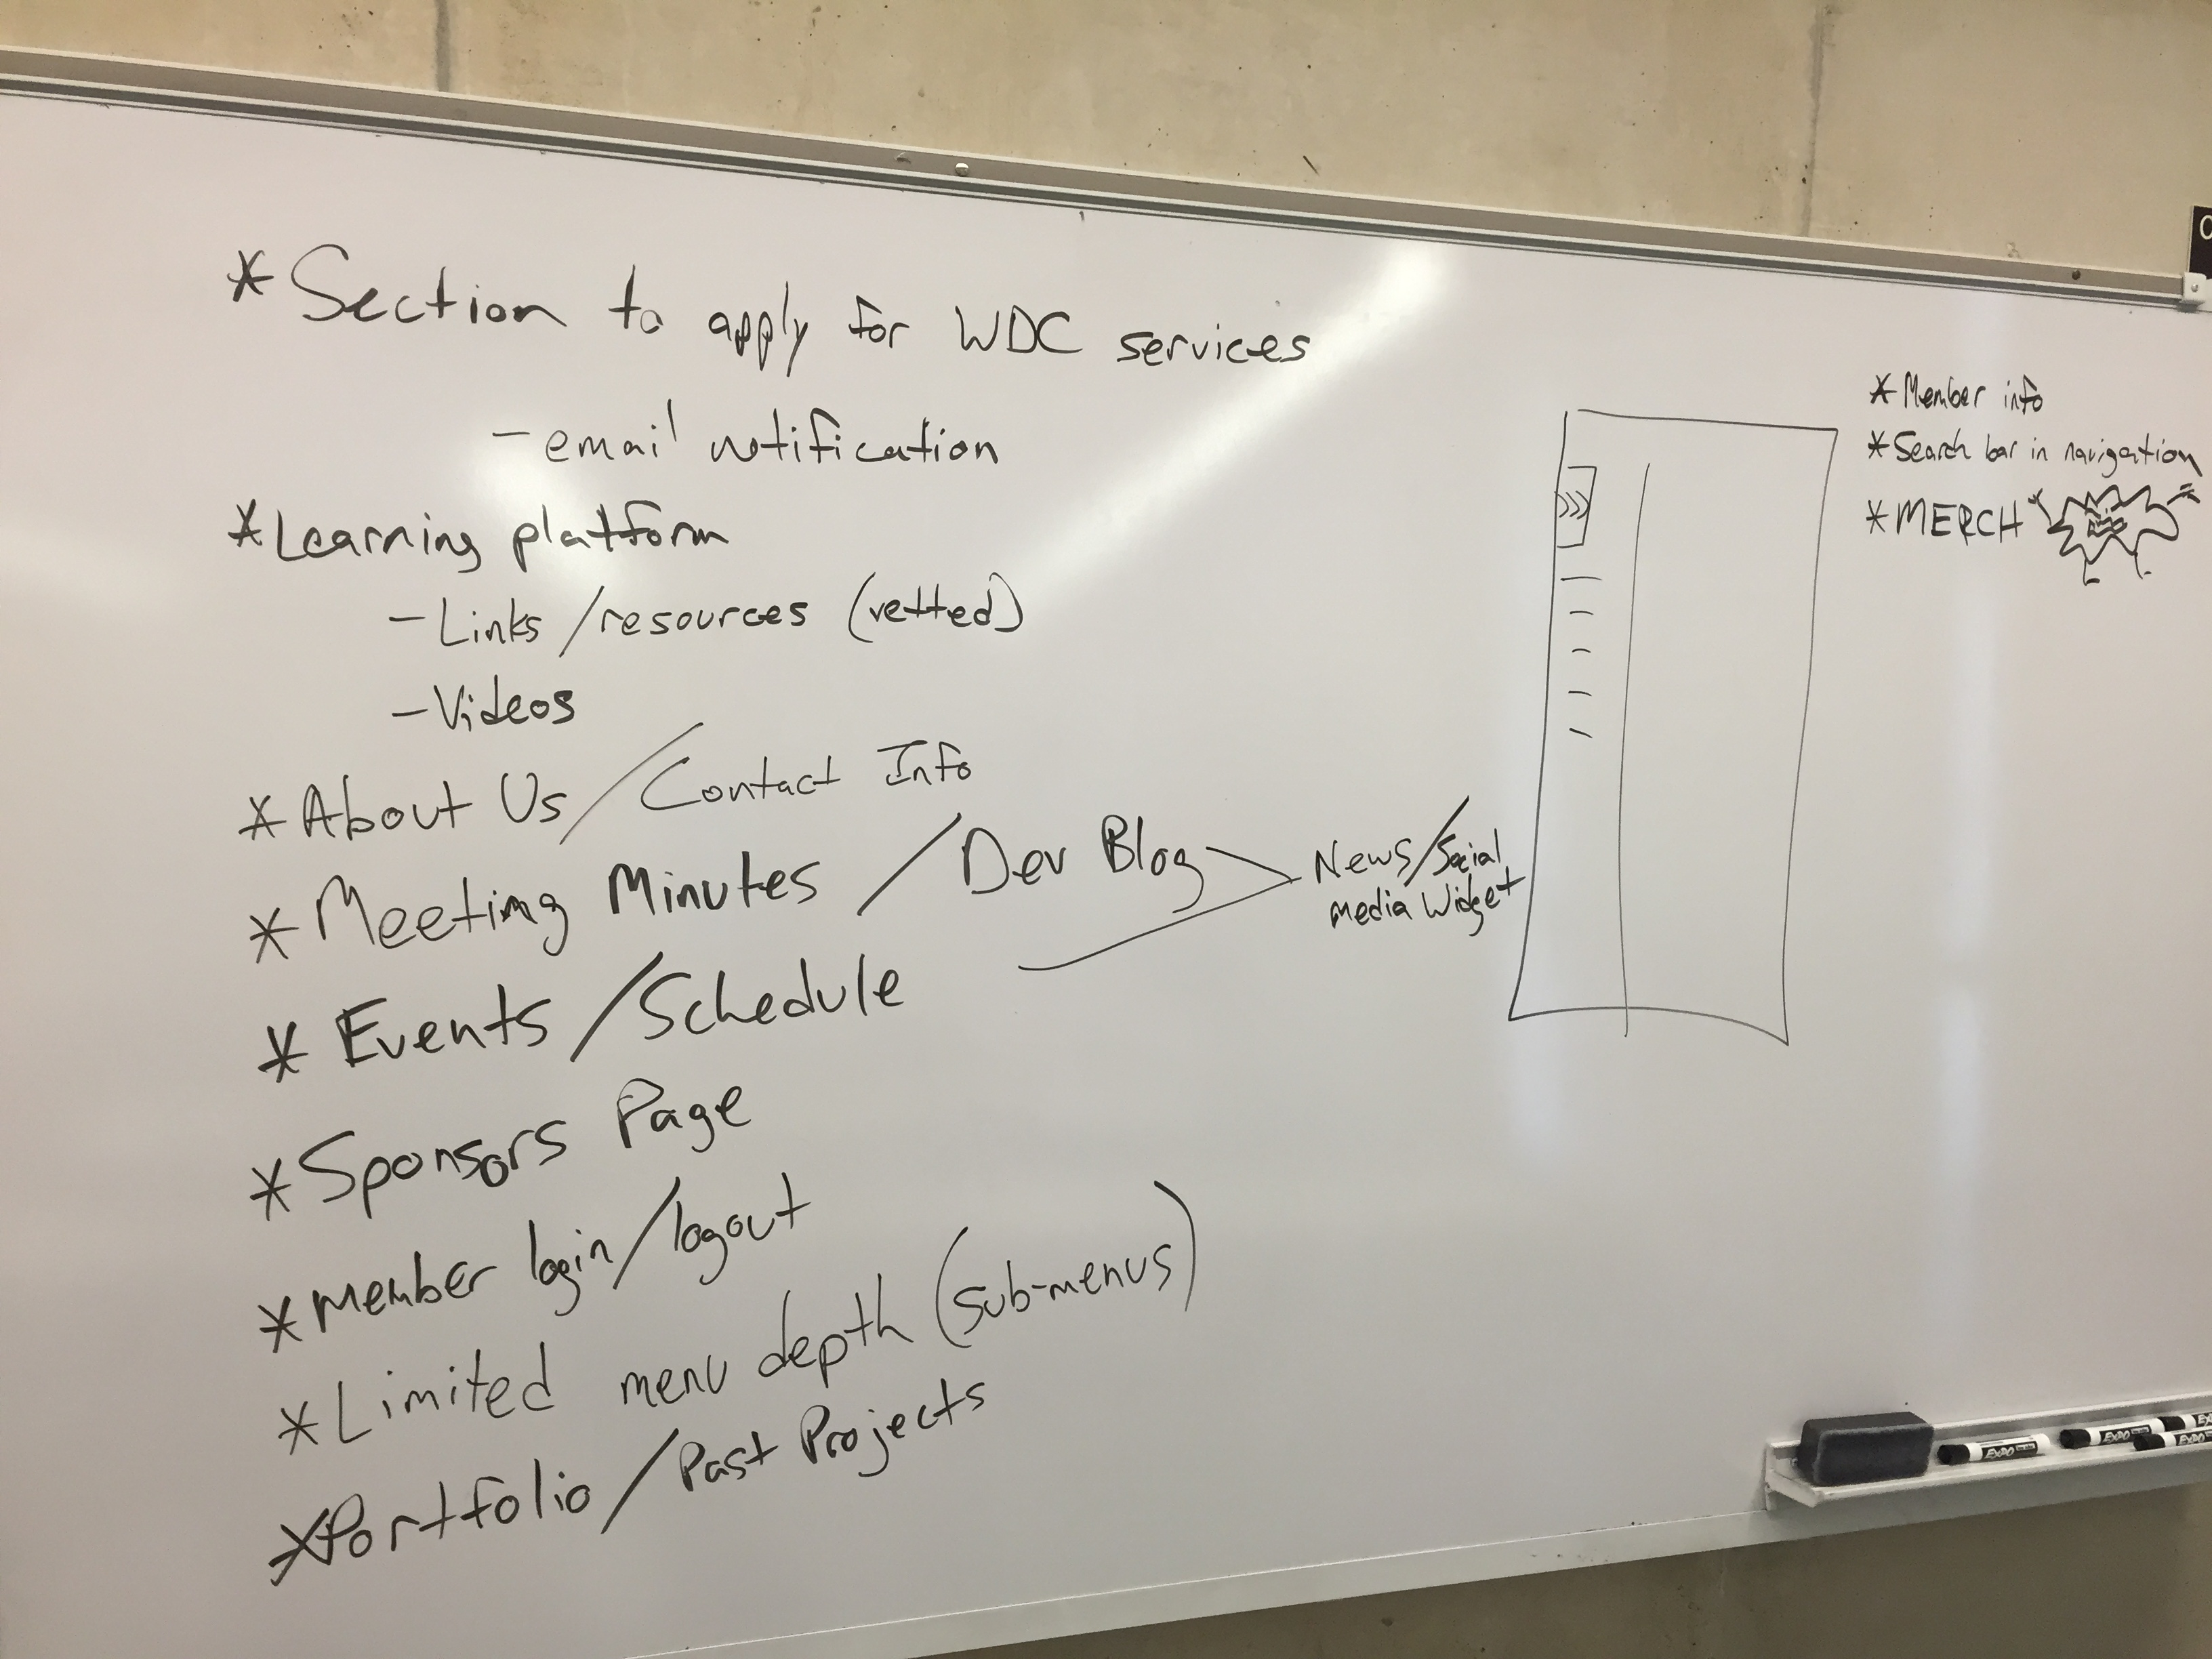 * Section to apply for WDC services
- email notification
* Learning platform
- Links/resources (vetted)
- Videos
* About Us / Contact Info
* Meeting Minutes / Dev Blog
* Events / Schedule
News/Social
media Widget
* Sponsors Page
* member login/logout
* Limited menu depth (sub-menus)
* Portfolio / Past Projects
* Member info
* Search bar in navigation
* MERCH
EXPO
EXPO
EXPO